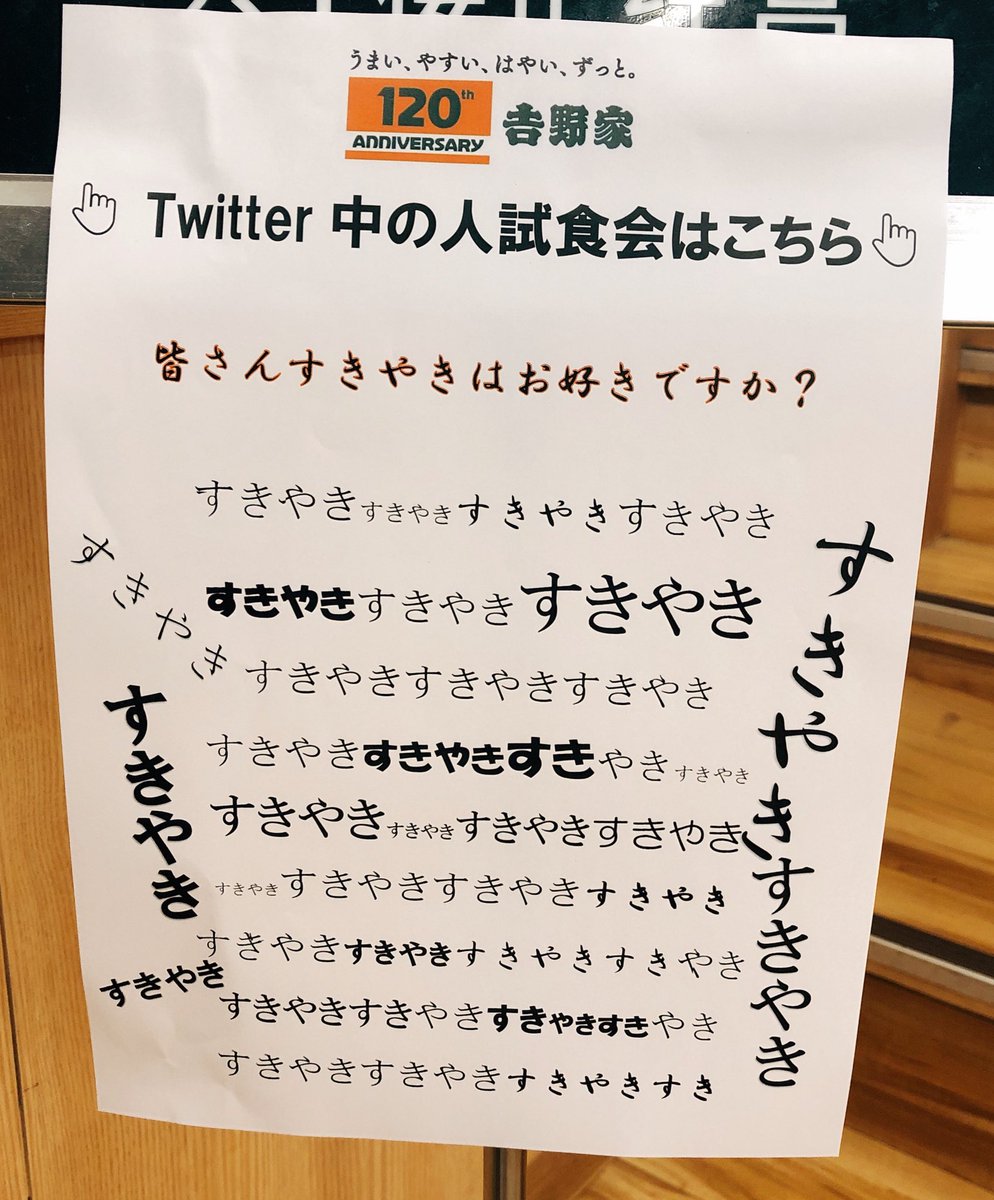 うまい、やすい、はやい、ずっと。
120th
ANNIVERSARY
吉野家
Twitter 中の人試食会はこちら
皆さんすきやきはお好きですか？
すきやきすきやきすきやきすきやき
すきやきすきやきすきやき
すきやきすきやきすきやき
すきやきすきやきすきやきすきやき
すきやきすきやきすきやきすきやき
すきやきすきやきすきやきすきやき
すきやきすきやきすきやきすきやき
すきやきすきやきすきやきすきやき
すきやきすきやきすきやきすき
すきやき
すきやき
すきやき
すきやき
すきやき